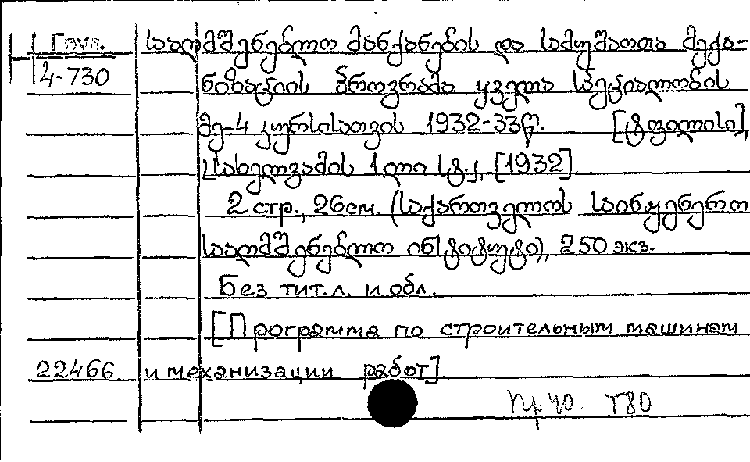 Груз. საამშენებლო მანქანების და სამუშაოთა მექა-
4-730 ნიზაციის პროგრამა ყველა სპეციალობის
მე-4 კურსისათვის 1932-33წ. [ტფილისი],
სახელგამის 1 ლიტ სტ., [1932]
2 стр., 26 см. (საქართველოს საინჟენერო
საამშენებლო ინსტიტუტი), 250 экз.
Без тит. л. и обл.
[Программа по строительным машинам
22466 и механизации работ]
T80